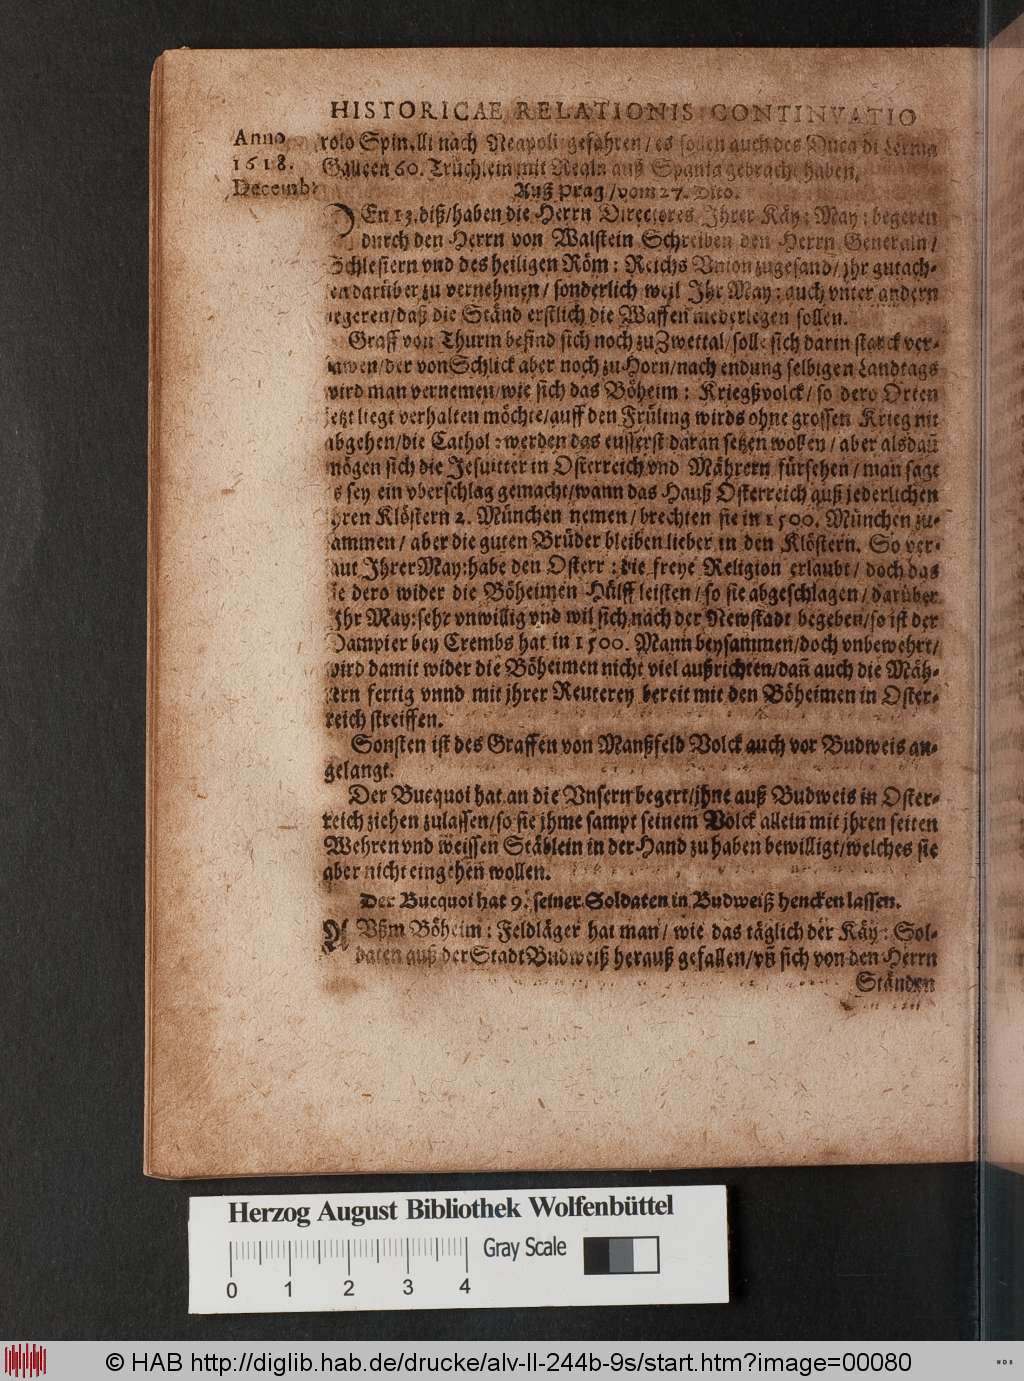 HISTORICAE RELATIONIS CONTINVATIO
Anno
1618.
Decembr
rolo Spinelli nach Neapoli gefahren / es sollen auch des Duca di Lerma
Galleen 60. Trüchlein mit Realn auß Spania gebracht haben.
Auß Prag / vom 27. Dito.
DEn 13. diß / haben die Herrn Directores Ihrer Käy: May: begeren
durch den Herrn von Walstein Schreiben den Herrn Generaln /
Schlesiern vnd des heiligen Röm: Reichs Vnion zugesand / jhr gutach-
en darüber zu vernehmen / sonderlich weil Ihr May: auch vnter andern
begeren / daß die Ständ erstlich die Waffen niederlegen sollen.
Graff von Thurm befind sich noch zu Zwettal / solle sich darin starck ver-
bawen / der von Schlick aber noch zu Horn / nach endung selbigen Landtags
wird man vernemen / wie sich das Böheim: Kriegßvolck / so dero Orten
jetzt liegt verhalten möchte / auff den Früling wirds ohne grossen Krieg nit
abgehen / die Cathol: werden das eusserst daran setzen wollen / aber alsdañ
mögen sich die Jesuitter in Osterreich vnd Mährern fürsehen / man sagt
es sey ein vberschlag gemacht / wann das Hauß Osterreich auß jederlichen
jhren Klöstern 2. München nemen / brechten sie in 1500. München zu-
sammen / aber die guten Brüder bleiben lieber in den Klöstern. So ver-
laut Ihrer May: habe den Osterr: die freye Religion erlaubt / doch das
sie dero wider die Böheimen Hülff leisten / so sie abgeschlagen / darüber
Ihr May: sehr vnwillig vnd wil sich nach der Newstadt begeben / so ist der
Dampier bey Crembs hat in 1500. Mann beysammen / doch vnbewehrt /
wird damit wider die Böheimen nicht viel außrichten / dañ auch die Mäh-
rern fertig vnnd mit jhrer Reuterey bereit mit den Böheimen in Oster-
reich streiffen.
Sonsten ist des Graffen von Manßfeld Volck auch vor Budweis an-
gelangt.
Der Bucquoi hat an die Vnsern begert / jhne auß Budweis in Oster-
reich ziehen zulassen / so sie jhme sampt seinem Volck allein mit jhren seiten
Wehren vnd weissen Stäblein in der Hand zu haben bewilligt / welches sie
aber nicht eingehen wollen.
Der Bucquoi hat 9. seiner Soldaten in Budweiß hencken lassen.
AVßm Böheim: Feldläger hat man / wie das täglich der Käy: Sol-
daten auß der Stadt Budweiß herauß gefallen / vñ sich von den Herrn
Ständen
Herzog August Bibliothek Wolfenbüttel
Gray Scale
0 1 2 3 4
© HAB http://diglib.hab.de/drucke/alv-ll-244b-9s/start.htm?image=00080